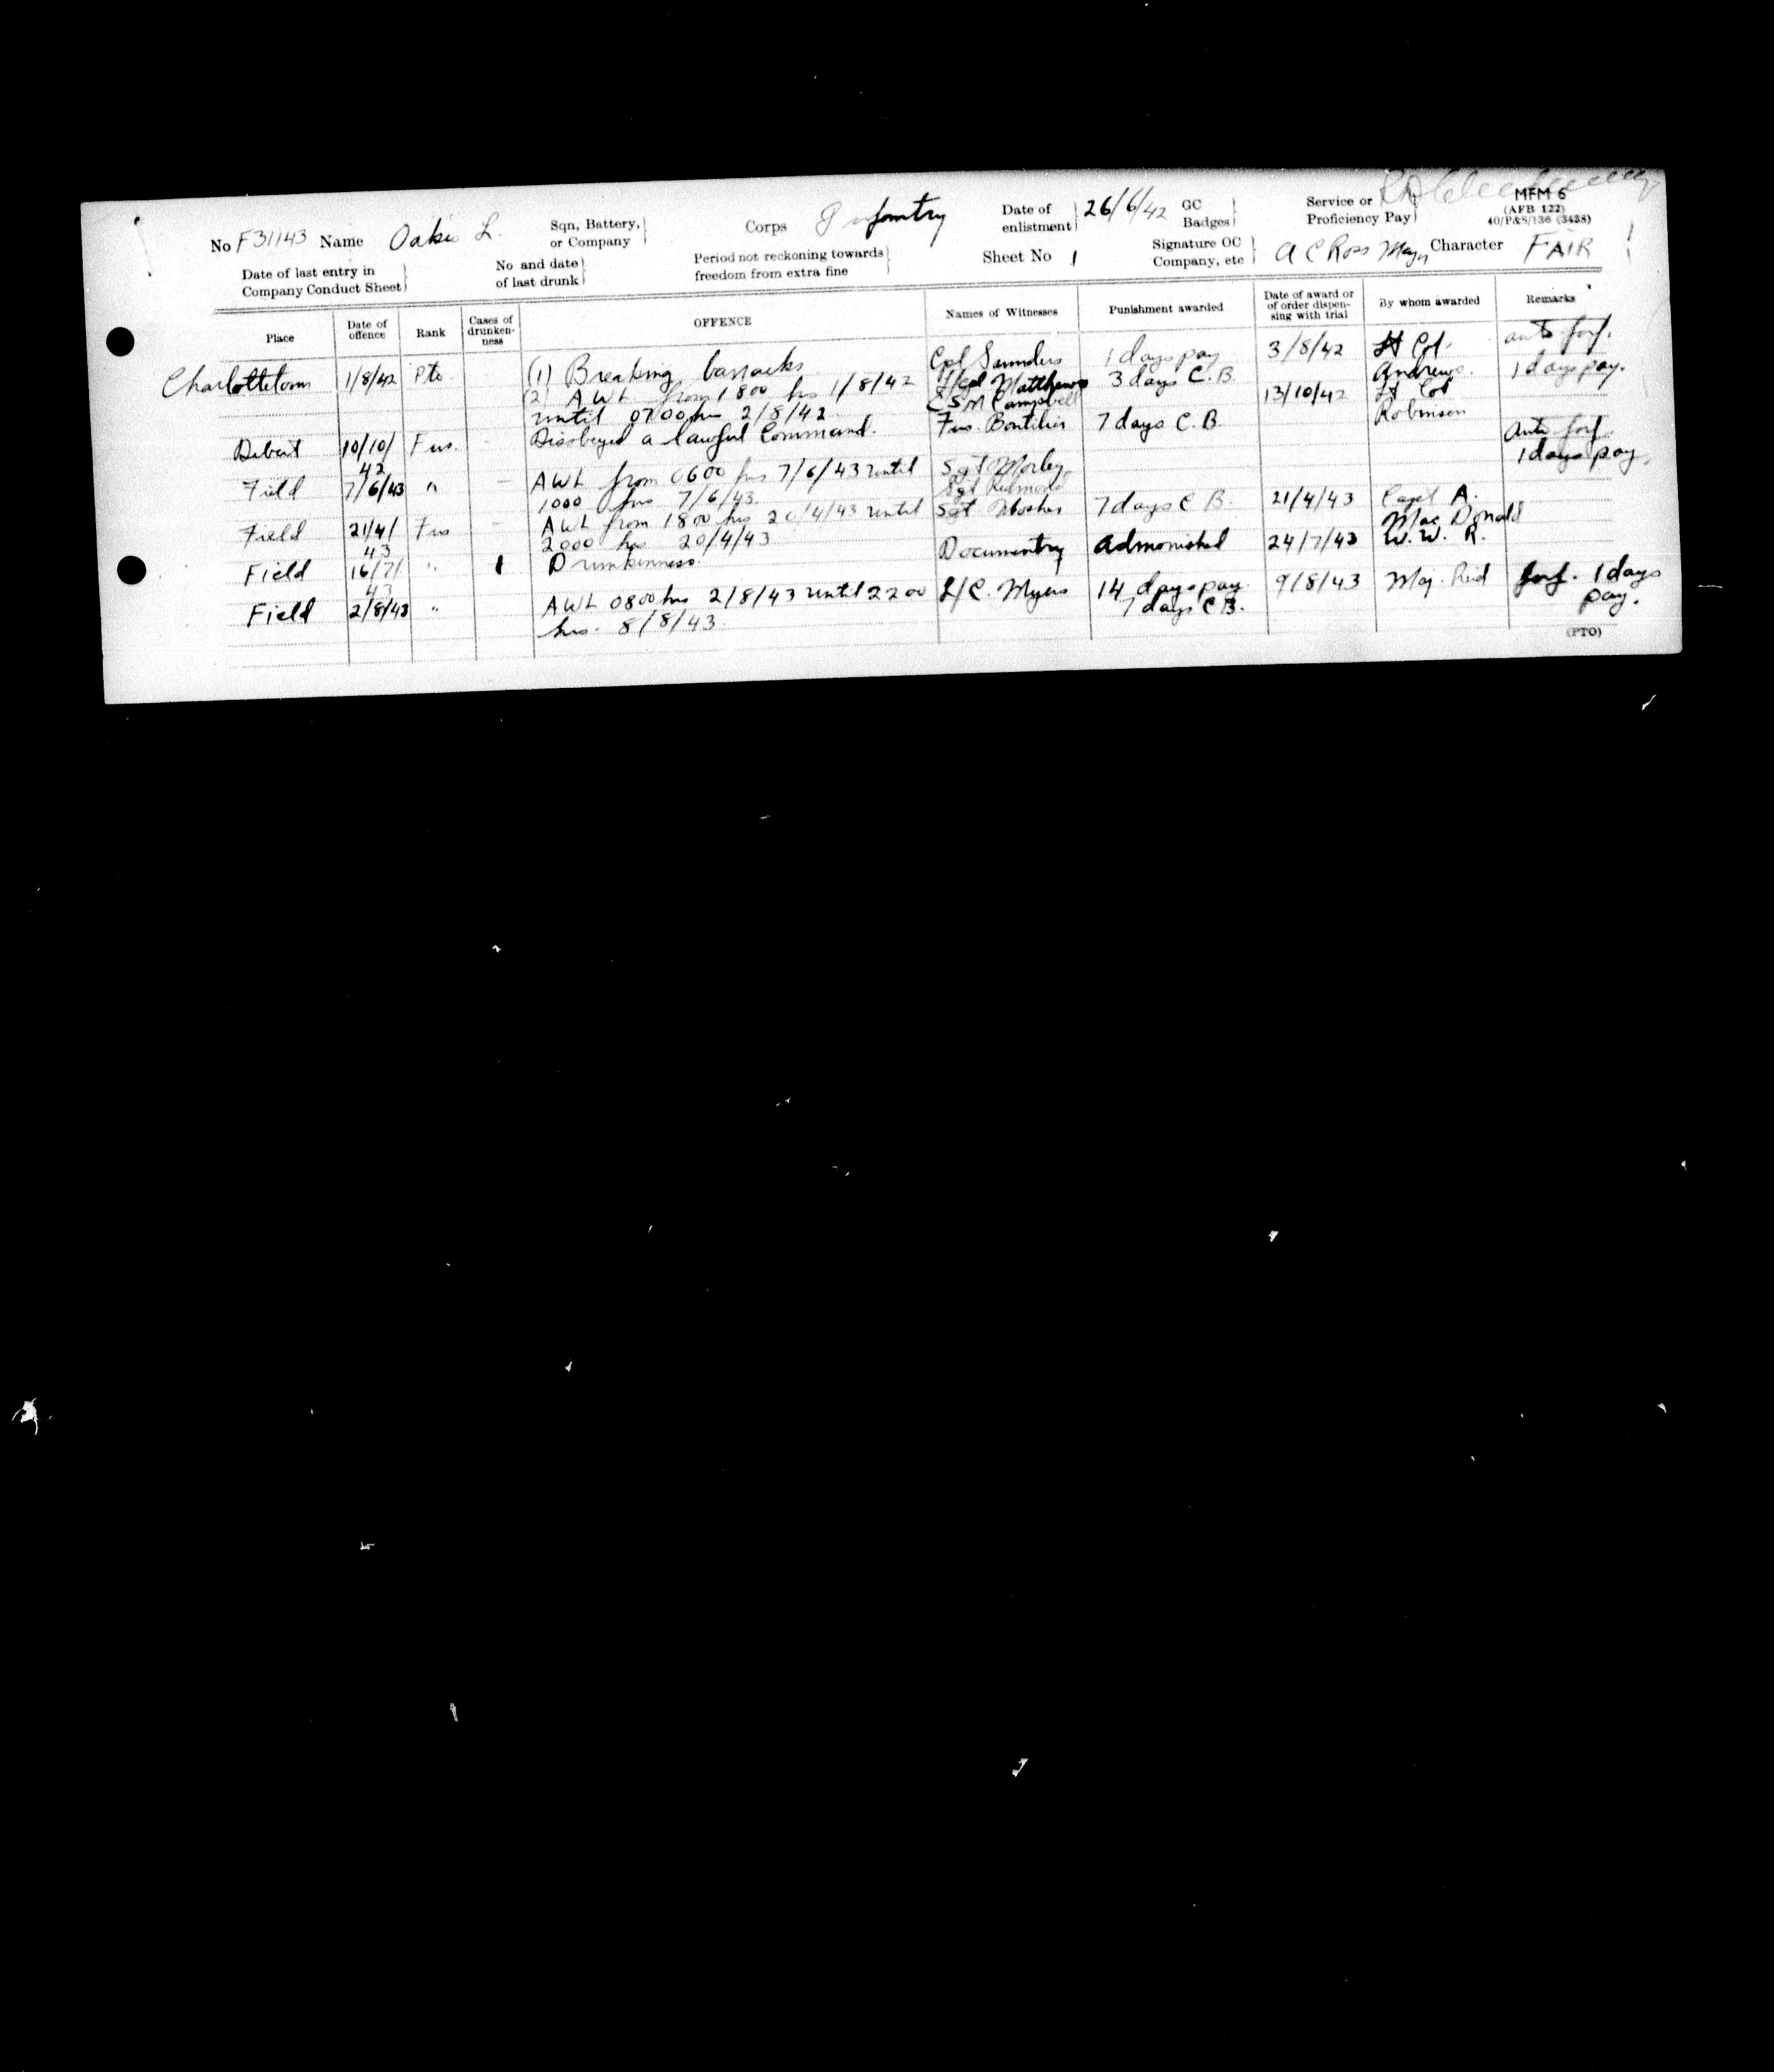 MFM 6
(AFB 122)
40/P&S/136 (3438)
No F31143 Name Oakes L. Sqn, Battery, or Company Corps Infantry Date of enlistment 26/6/42 GC Badges Service or Proficiency Pay
Date of last entry in Company Conduct Sheet No and date of last drunk Period not reckoning towards freedom from extra fine Sheet No 1 Signature OC Company, etc A C Ross Major Character FAIR
Place Date of offence Rank Cases of drunken-ness OFFENCE Names of Witnesses Punishment awarded Date of award or of order dispen-sing with trial By whom awarded Remarks
Charlottetown 1/8/42 Pte. (1) Breaking barracks Cpl Saunders 1 days pay 3/8/42 Lt Col. auto forf.
(2) AWL from 1800 hrs 1/8/42 L/Cpl Matthews 3 days C.B. Andrews. 1 days pay.
until 0700 hrs 2/8/42 CSM Campbell 13/10/42 Lt Col
Debert 10/10/42 Fus. – Disobeyed a lawful Command. Fus. Boutilier 7 days C.B. Robinson
Field 7/6/43 " – AWL from 0600 hrs 7/6/43 until Sgt Morley Auto forf.
1000 hrs 7/6/43. Sgt Redmond 1 days pay.
Field 21/4/43 Fus – AWL from 1800 hrs 20/4/43 until Sgt Mosher 7 days C B. 21/4/43 Capt A.
2000 hrs 20/4/43 Mac Donald
Field 16/7/43 " 1 Drunkenness. Documentry Admonished 24/7/43 W. W. R.
Field 2/8/43 " AWL 0800 hrs 2/8/43 until 2200 L/C. Myers 14 days pay 9/8/43 Maj. Reid forf. 1 days
hrs. 8/8/43. 7 days C B. pay.
(PTO)